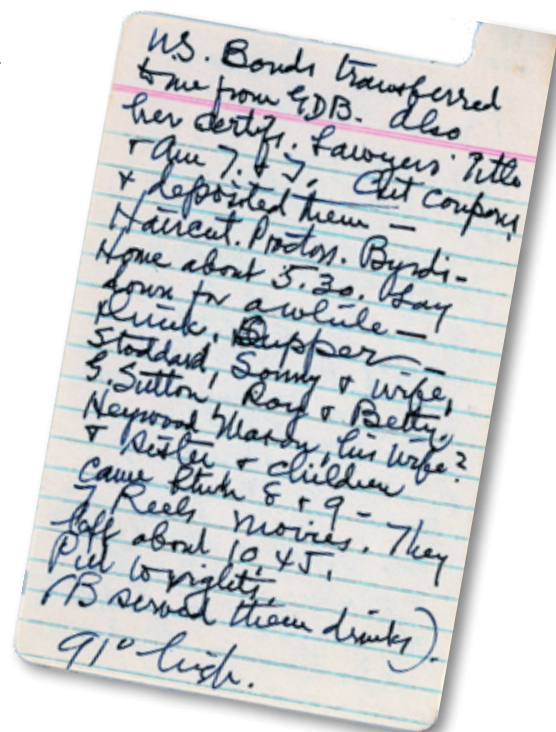 U.S. Bonds transferred
to me from GDB. Also
her certifs. Lawyers' Title
+ Am T. & T. Cut coupons
+ deposited them —
Haircut. Proctors. Byrdi-
Home about 5.30. Lay
down for awhile —
Drink. Supper —
Stoddard, Sonny + wife,
G. Sutton, Roy + Betty.
Heywood his wife?
+ sister + children
came 8 + 9 - They
7 Reels movies.
left about 10.45.
Pill to nights.
(B served them drinks).
91° high.